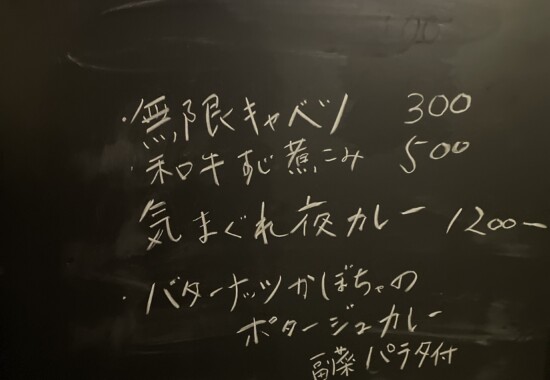 ・無限キャベツ 300
・和牛すじ煮こみ 500
気まぐれ夜カレー 1200-
・バターナッツかぼちゃの
ポタージュカレー
副菜 パラタ付